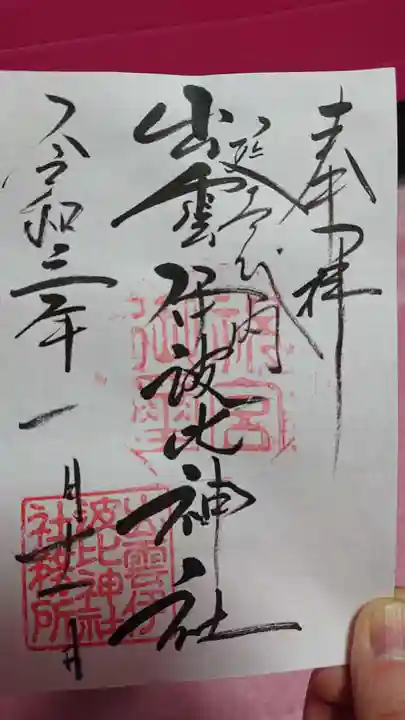 奉拝
延喜式内
出雲伊波比神社
令和三年一月廿一日
出雲伊
波比神社
社務所